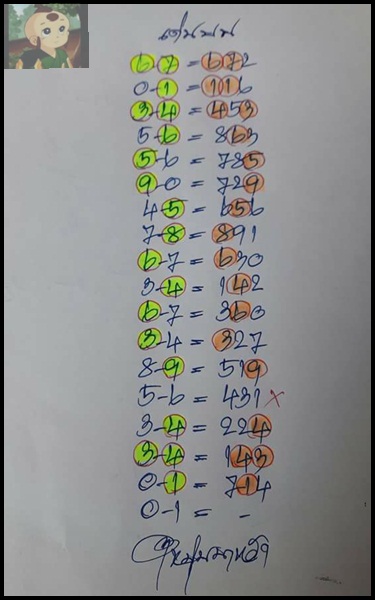 เด่นบน
6-7 = 672
0-1 = 116
3-4 = 453
5-6 = 863
5-6 = 785
9-0 = 729
4-5 = 656
7-8 = 891
6-7 = 630
3-4 = 142
6-7 = 360
3-4 = 327
8-9 = 519
5-6 = 431 ×
3-4 = 224
3-4 = 143
0-1 = 714
0-1 = -